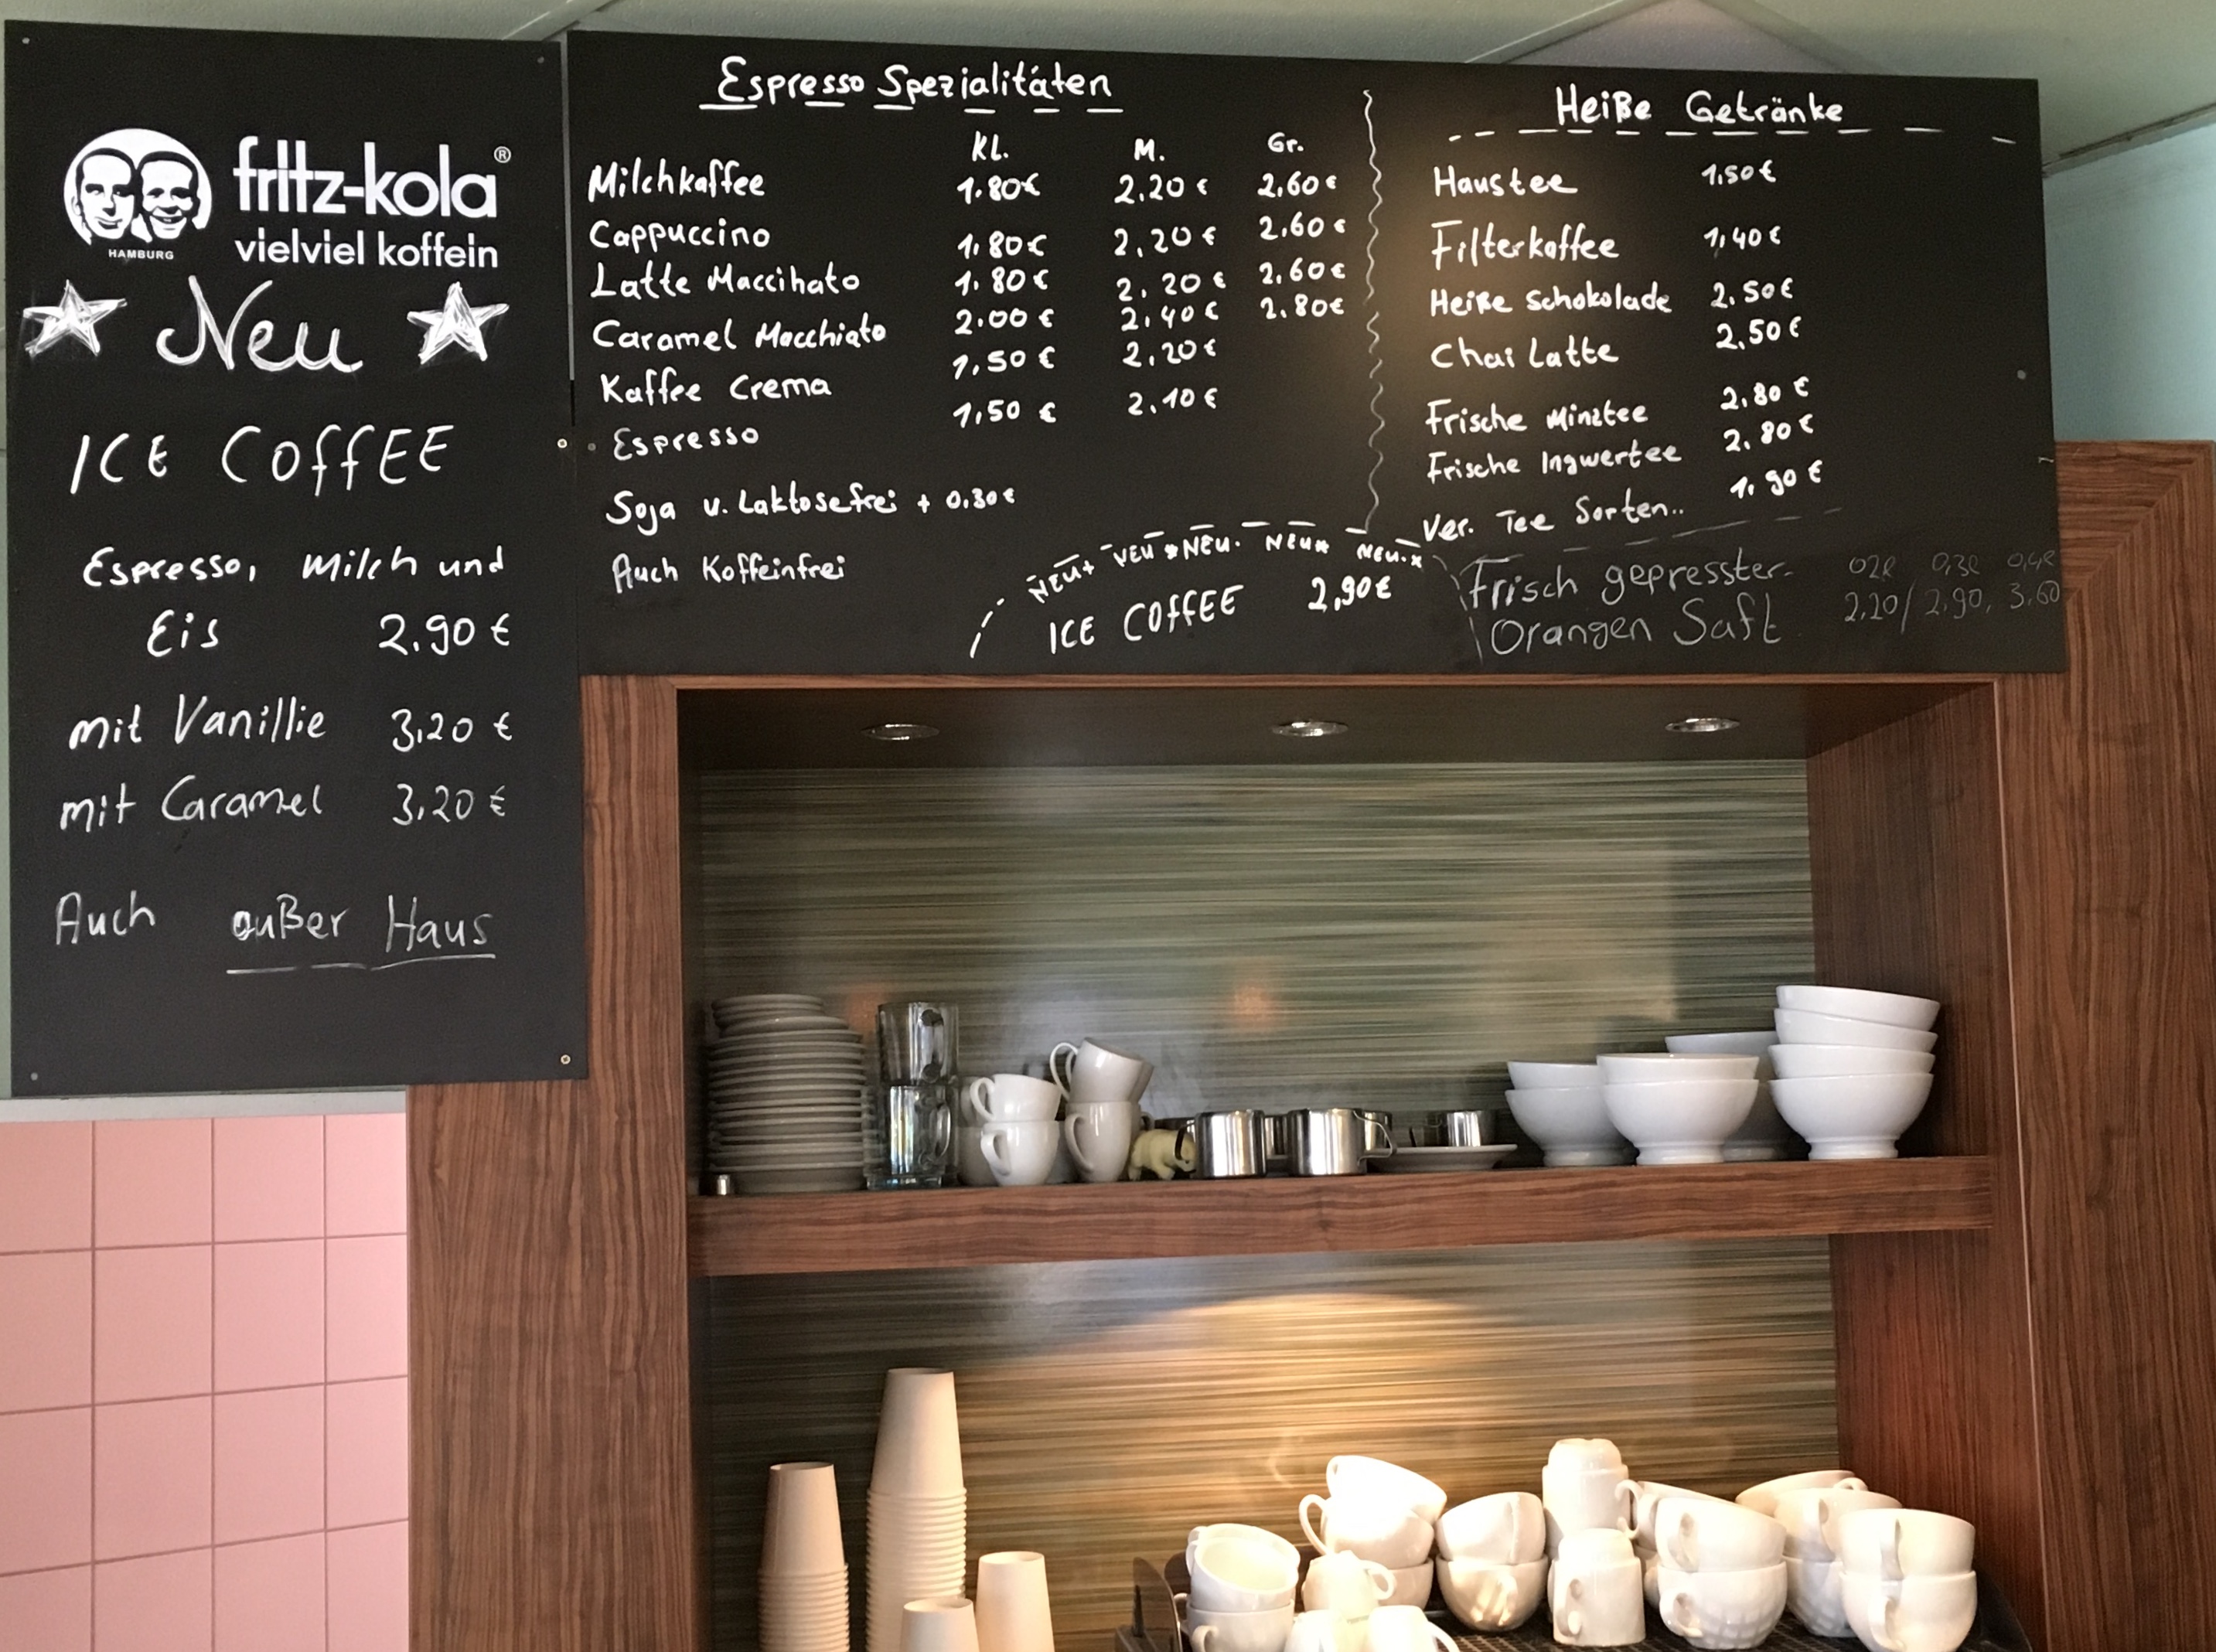 fritz-kola®
HAMBURG
vielviel koffein
Neu
ICE COFFEE
Espresso, Milch und
Eis 2.90 €
mit Vanillie 3,20 €
mit Caramel 3,20 €
Auch außer Haus
Espresso Spezialitäten
KL. M. Gr.
Milchkaffee 1.80€ 2.20 € 2,60 €
Cappuccino 1,80€ 2,20 € 2.60 €
Latte Maccihato 1.80 € 2.20 € 2.60 €
Caramel Macchiato 2.00 € 2,40 € 2.80€
Kaffee Crema 1,50 € 2.20 €
Espresso 1,50 € 2.10 €
Soja u. Laktosefrei + 0.30 €
Auch Koffeinfrei
NEU* NEU * NEU. NEU* NEU.*
ICE COFFEE 2,90€
Heiße Getränke
Haustee 1,50 €
Filterkaffee 1,40 €
Heiße Schokolade 2.50€
Chai Latte 2,50 €
Frische Minztee 2.80 €
Frische Ingwertee 2.80 €
Ver. Tee Sorten.. 1.90 €
Frisch gepresster 0,3l
Orangen Saft 2.20/ 2.90, 3.60